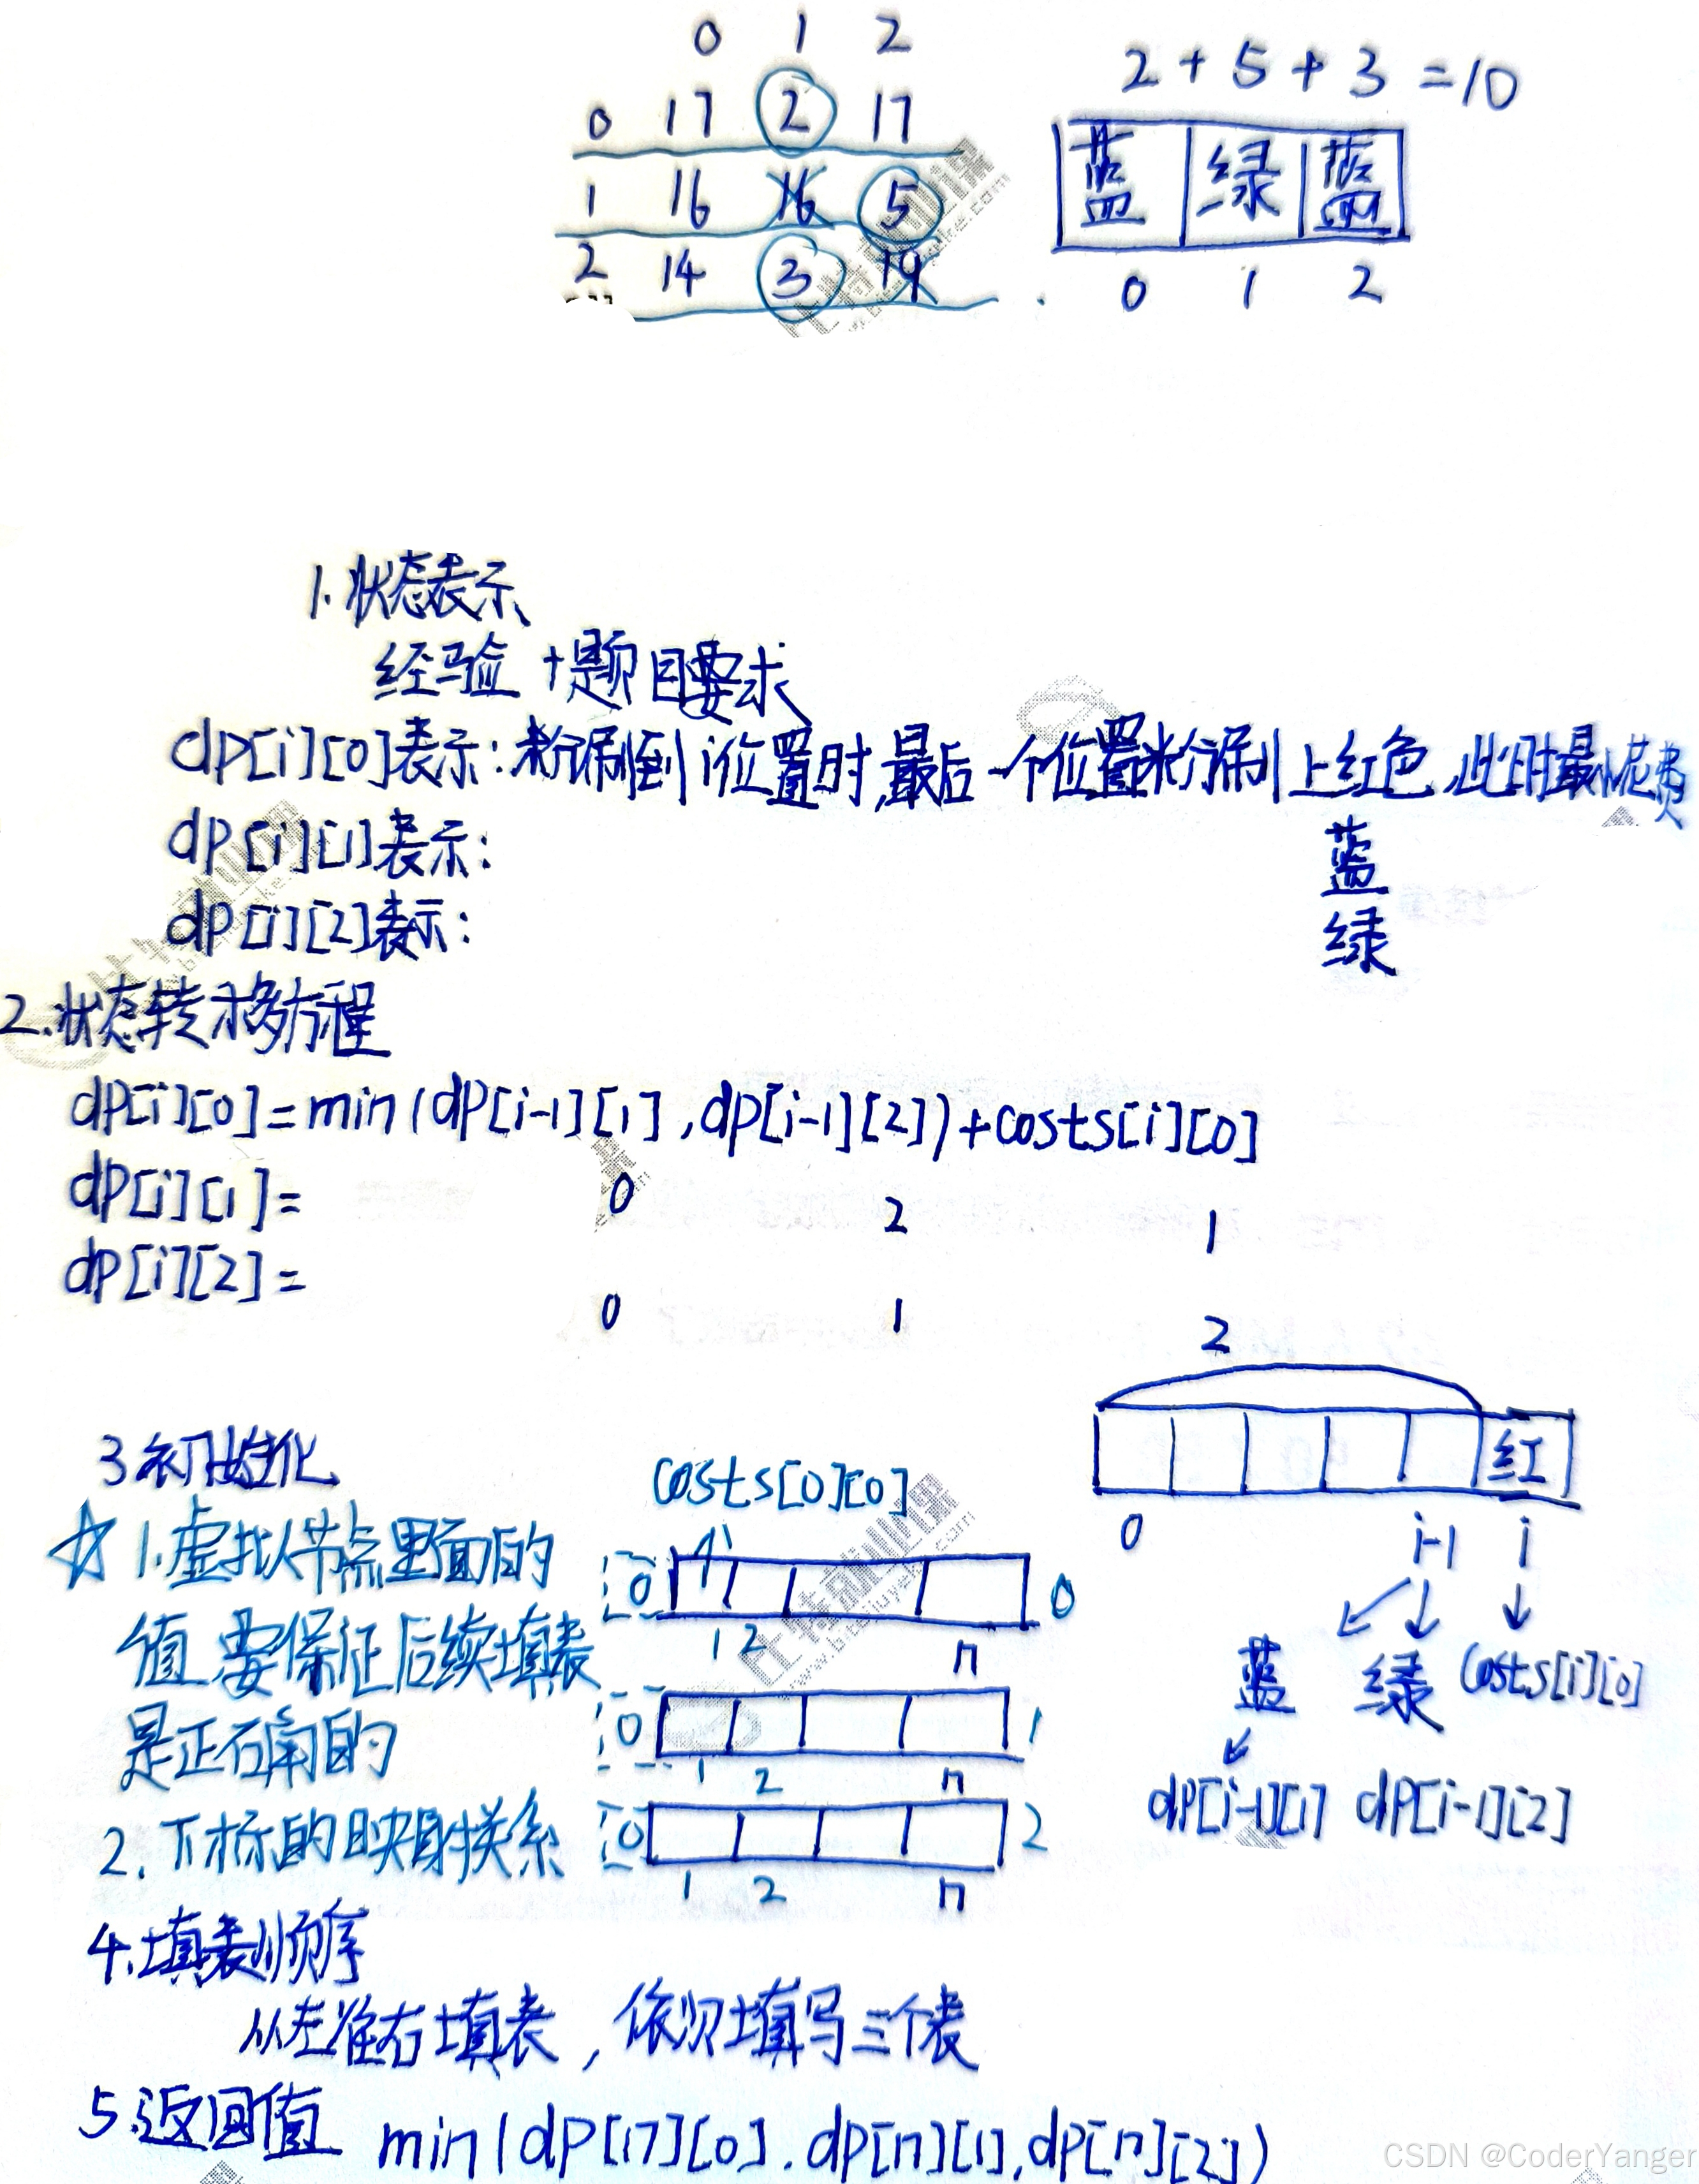 0 1 2
2 + 5 + 3 = 10
0 17 2 17
蓝 绿 蓝
1 16 16 5
2 14 3 19
0 1 2
1.状态表示
经验+题目要求
dp[i][0]表示:粉刷到i位置时,最后一个位置粉刷上红色,此时最小花费
dp[i][1]表示: 蓝
dp[i][2]表示: 绿
2.状态转移方程
dp[i][0]=min(dp[i-1][1],dp[i-1][2])+costs[i][0]
dp[i][1]= 0 2 1
dp[i][2]= 0 1 2
3.初始化
costs[0][0]
红
0 i-1 i
☆ 1.虚拟节点里面的
值,要保证后续填表
是正确的
0 0
1 2 n
蓝 绿 costs[i][0]
0 1
1 2 n
dp[i-1][1] dp[i-1][2]
2.下标的映射关系
0 2
1 2 n
4.填表顺序
从左往右填表,依次填写三个表
5.返回值 min(dp[n][0],dp[n][1],dp[n][2])
CSDN @CoderYanger